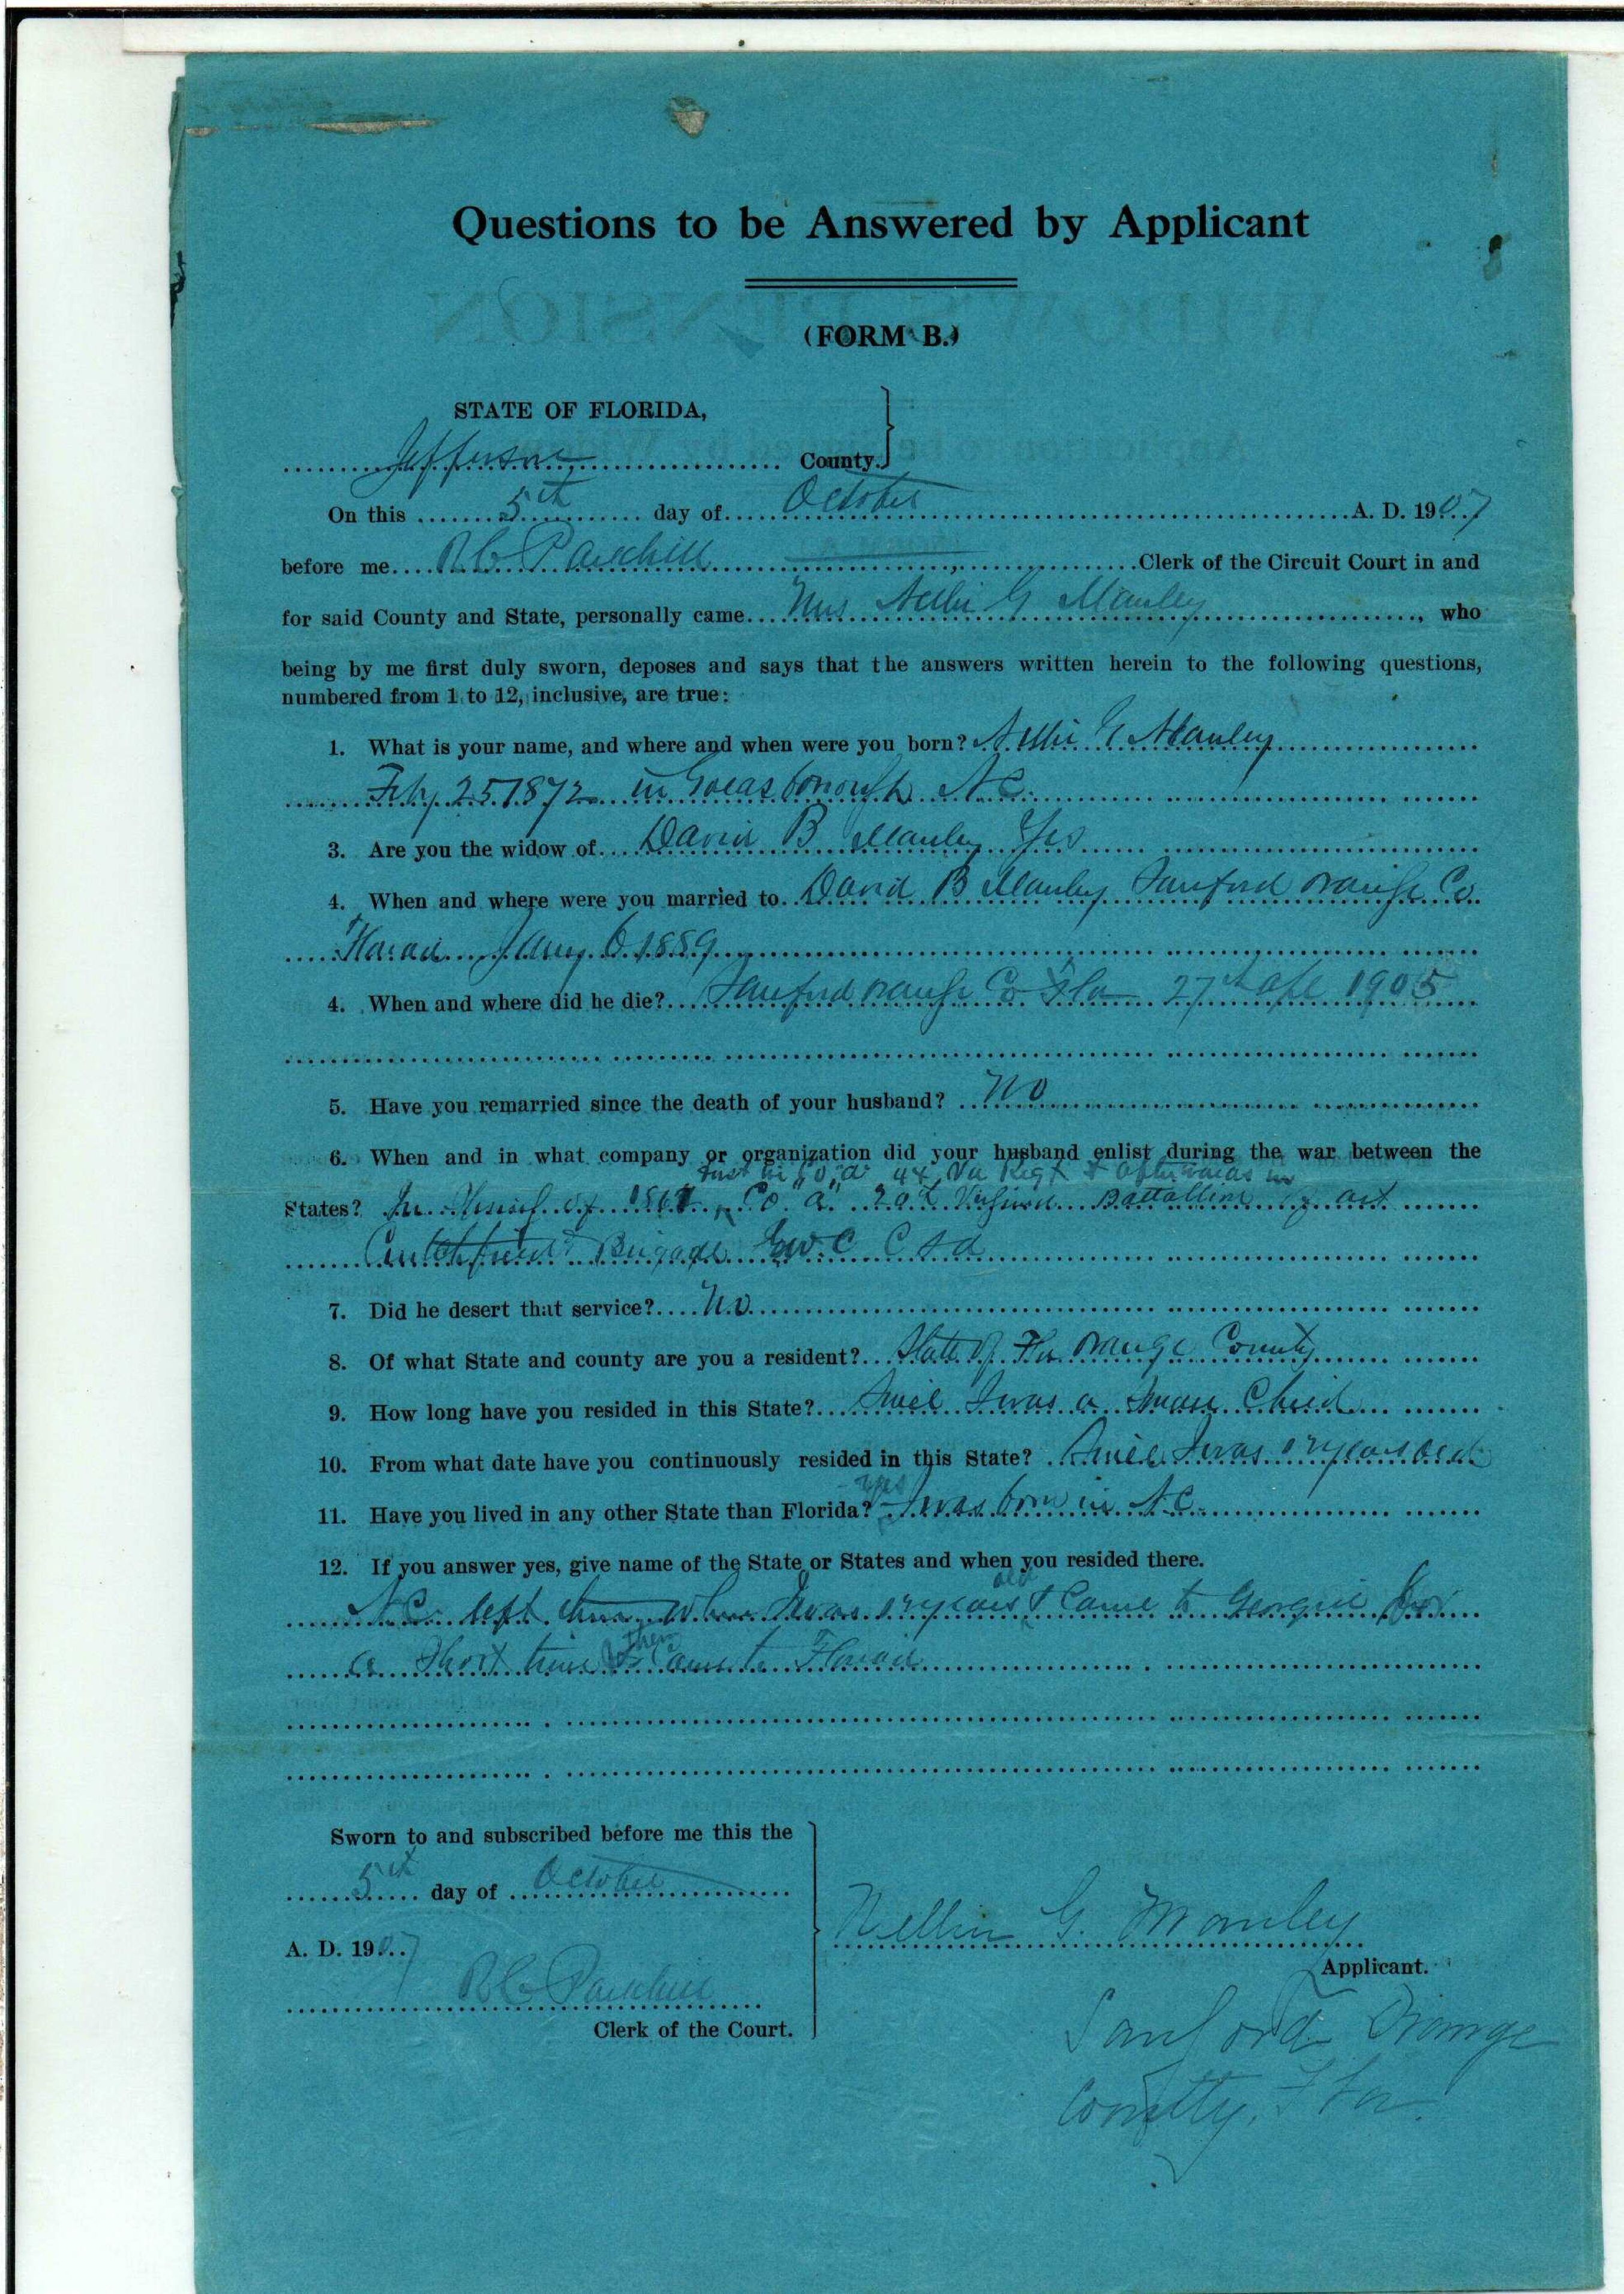 Questions to be Answered by Applicant
(FORM B.)
STATE OF FLORIDA,
Jefferson County.
On this 5th day of October A. D. 1907
before me R C Parkhill Clerk of the Circuit Court in and
for said County and State, personally came Mrs Nellie G Manley, who
being by me first duly sworn, deposes and says that the answers written herein to the following questions,
numbered from 1 to 12, inclusive, are true:
1. What is your name, and where and when were you born? Nellie G Manley
Feby 25 1872 in N C.
3. Are you the widow of David B Manley Yes
4. When and where were you married to David B Manley Sanford Orange Co
Florida Jany 6 1889
4. When and where did he die? Sanford Orange Co Fla 27th 1905
5. Have you remarried since the death of your husband? No
6. When and in what company or organization did your husband enlist during the war between the
first in Co "A" 44 Va Regt & afterwards in
States? In of 1861 Co "A" 20th Virginia Battallion of art
Brigade C S A
7. Did he desert that service? No
8. Of what State and county are you a resident? State of Fla Orange County
9. How long have you resided in this State? Since I was a small Child
10. From what date have you continuously resided in this State? Since I was years old
11. Have you lived in any other State than Florida? yes I was born in N.C.
12. If you answer yes, give name of the State or States and when you resided there.
N C. left there when I was years old & Came to Georgia for
a Short time & then Came to Florida
Sworn to and subscribed before me this the
5th day of October
A. D. 1907
R C Parkhill
Clerk of the Court.
Nellie G. Manley
Applicant.
Sanford Orange
County, Fla.